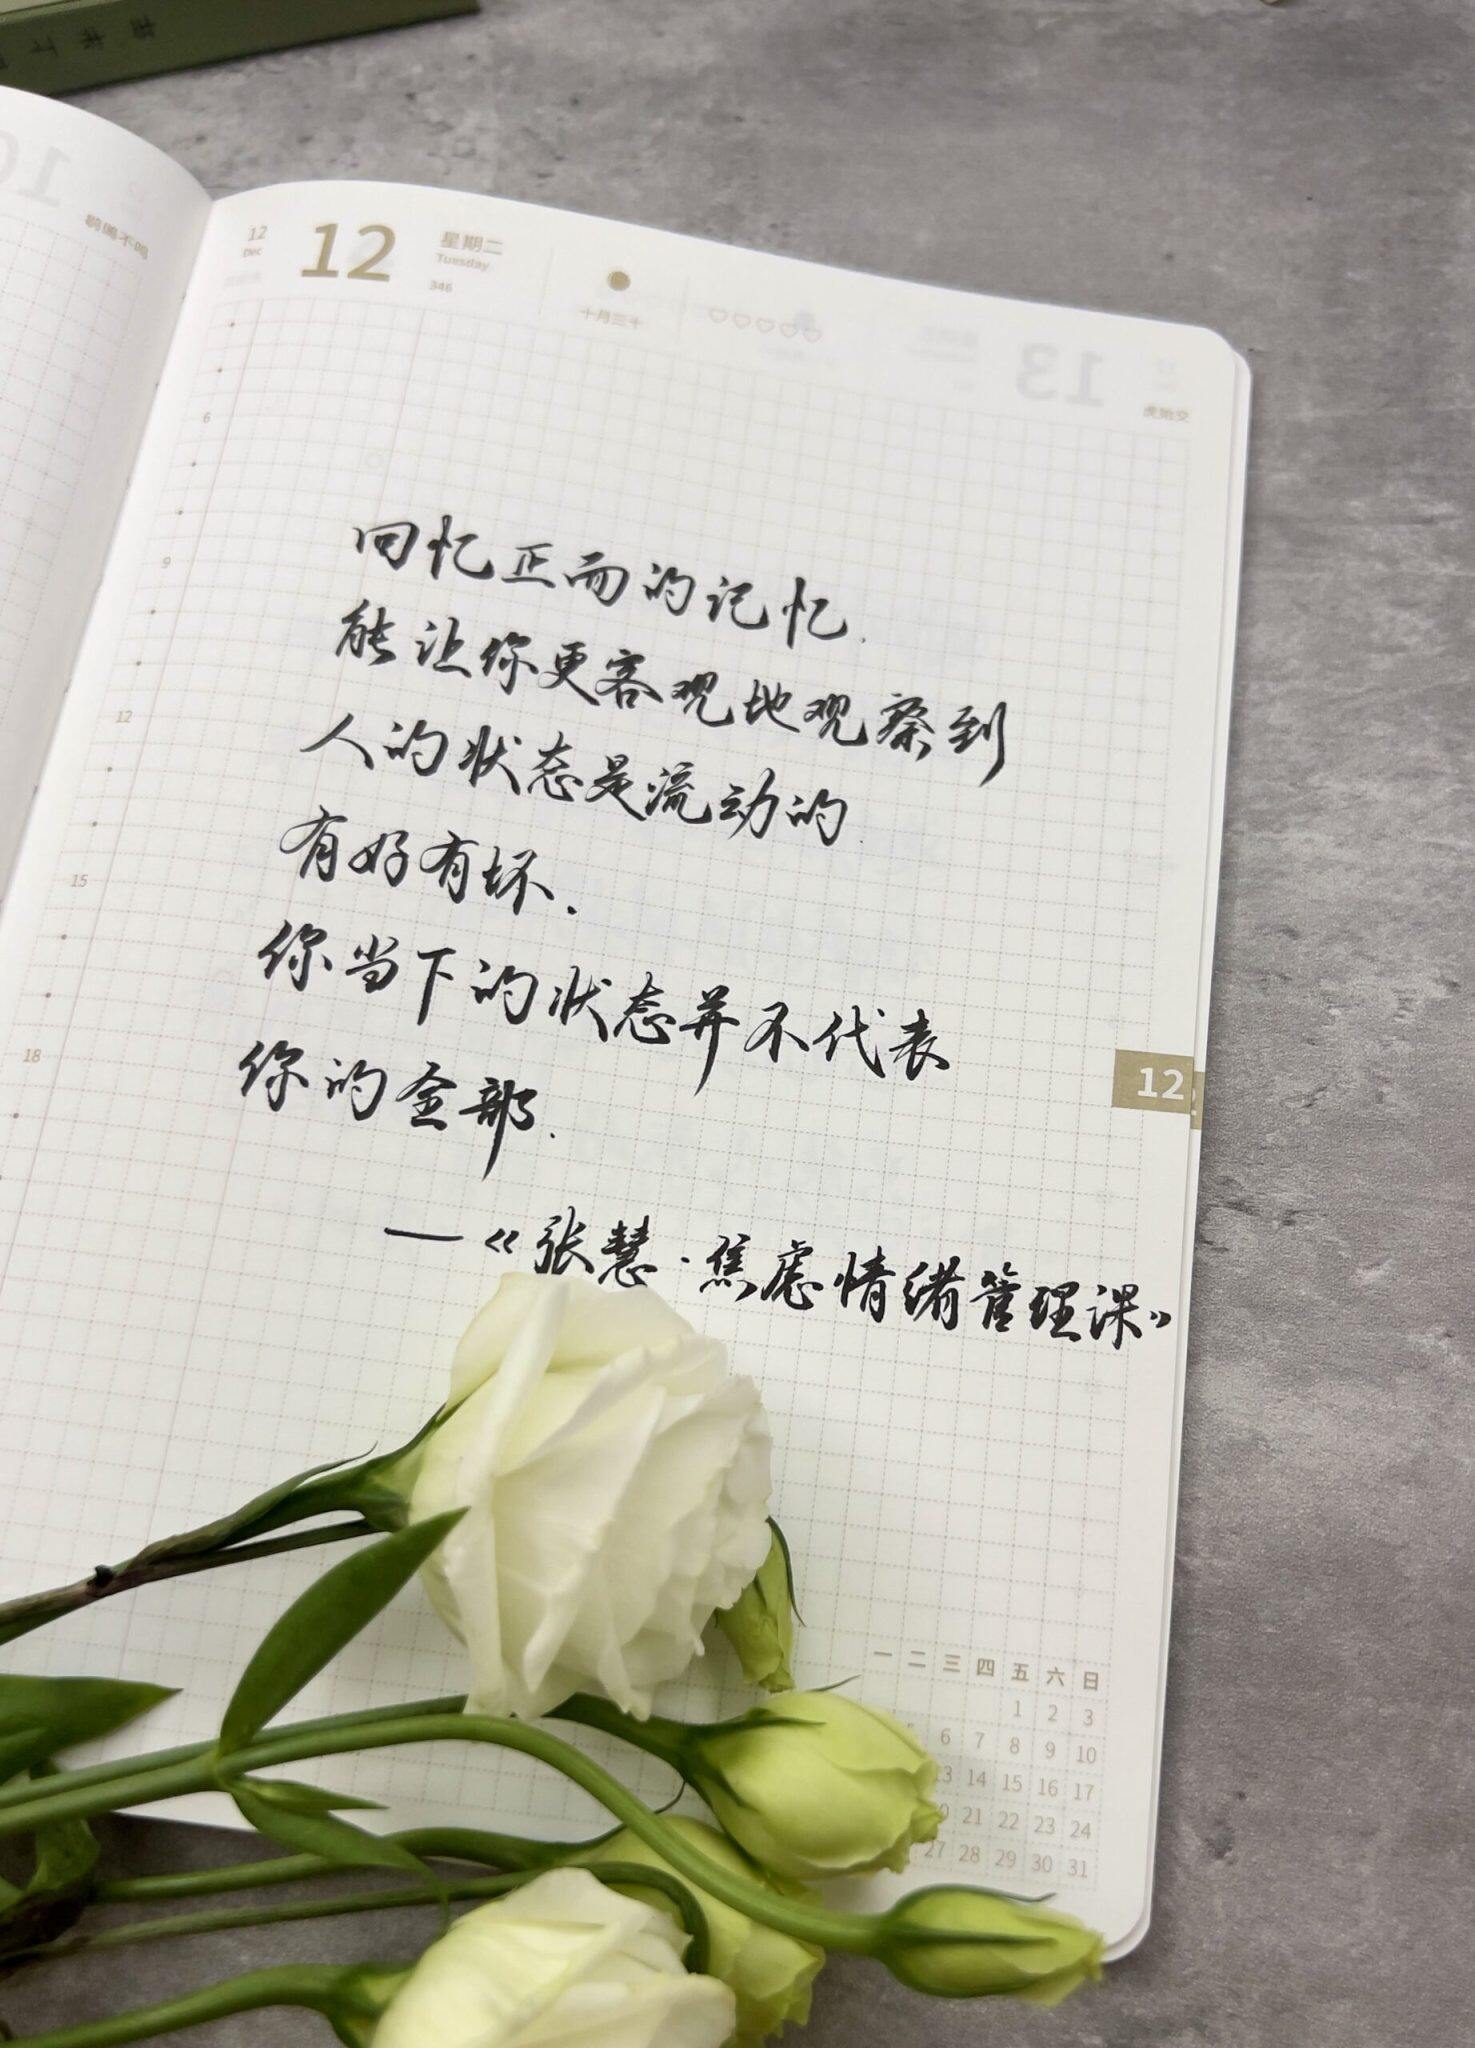 12
Dec
12
星期二
Tuesday
346
十月三十
6
9
12
15
18
回忆正面的记忆.
能让你更客观地观察到
人的状态是流动的.
有好有坏.
你当下的状态并不代表
你的全部.
—《张慧·焦虑情绪管理课》
12
一 二 三 四 五 六 日
1 2 3
6 7 8 9 10
13 14 15 16 17
21 22 23 24
27 28 29 30 31